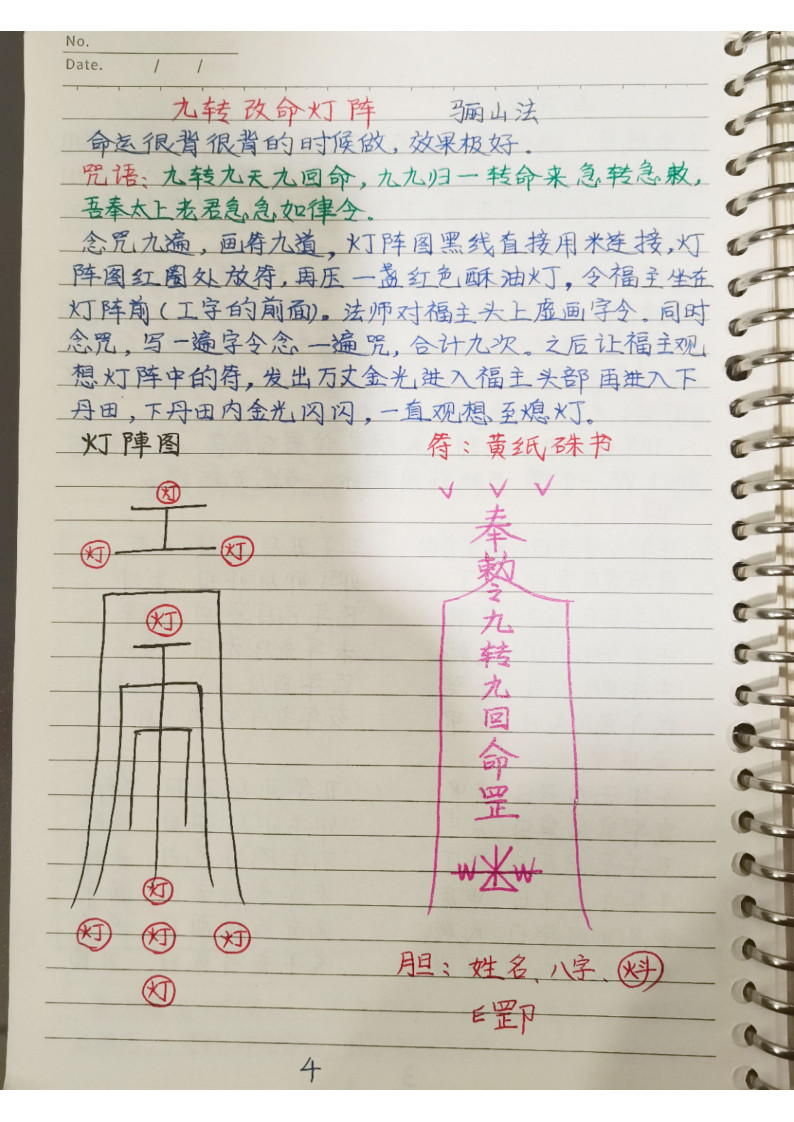 No.
Date. / /
九转改命灯阵 骊山法
命运很背很背的时候做，效果极好．
咒语：九转九天九回命，九九归一转命来急转急敕，
吾奉太上老君急急如律令．
念咒九遍，画符九道，灯阵图黑线直接用米连接，灯
阵图红圈处放符，再压一盏红色酥油灯，令福主坐在
灯阵前（工字的前面）。法师对福主头上虚画字令．同时
念咒，写一遍字令念一遍咒，合计九次。之后让福主观
想灯阵中的符，发出万丈金光进入福主头部再进入下
丹田，下丹田内金光闪闪，一直观想至熄灯。
灯陣图 符：黄纸硃书
灯
灯 灯
灯
灯
灯 灯 灯
灯
奉
勅
令
九
转
九
回
命
罡
胆：姓名、八字、
4